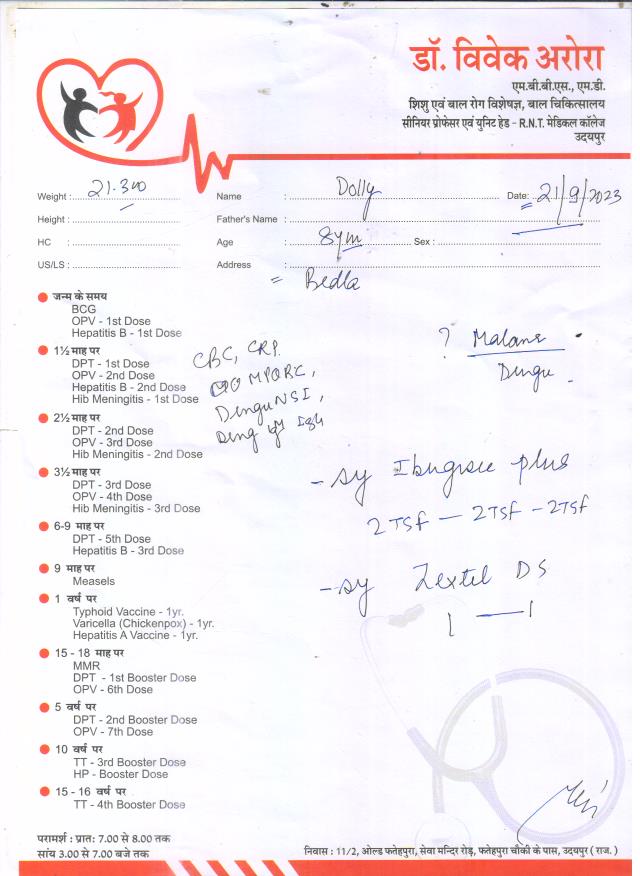 डॉ. विवेक अरोरा
एम.बी.बी.एस., एम.डी.
शिशु एवं बाल रोग विशेषज्ञ, बाल चिकित्सालय
सीनियर प्रोफेसर एवं युनिट हेड - R.N.T. मेडिकल कॉलेज
उदयपुर
Weight : 21.300 Name : Dolly Date: 21/9/2023
Height : Father's Name :
HC : Age : 8 Sex :
US/LS : Address : Bedla
जन्म के समय
BCG
OPV - 1st Dose
Hepatitis B - 1st Dose
1½ माह पर
DPT - 1st Dose
OPV - 2nd Dose
Hepatitis B - 2nd Dose
Hib Meningitis - 1st Dose
2½ माह पर
DPT - 2nd Dose
OPV - 3rd Dose
Hib Meningitis - 2nd Dose
3½ माह पर
DPT - 3rd Dose
OPV - 4th Dose
Hib Meningitis - 3rd Dose
6-9 माह पर
DPT - 5th Dose
Hepatitis B - 3rd Dose
9 माह पर
Measels
1 वर्ष पर
Typhoid Vaccine - 1yr.
Varicella (Chickenpox) - 1yr.
Hepatitis A Vaccine - 1yr.
15 - 18 माह पर
MMR
DPT - 1st Booster Dose
OPV - 6th Dose
5 वर्ष पर
DPT - 2nd Booster Dose
OPV - 7th Dose
10 वर्ष पर
TT - 3rd Booster Dose
HP - Booster Dose
15 - 16 वर्ष पर
TT - 4th Booster Dose
CBC, CRP.
Dengu NSI,
?
Dengu
- sy plus
2 Tsf - 2 Tsf - 2 Tsf
- sy DS
1 — 1
परामर्श : प्रातः 7.00 से 8.00 तक
सांय 3.00 से 7.00 बजे तक
निवास : 11/2, ओल्ड फतेहपुरा, सेवा मन्दिर रोड़, फतेहपुरा चौकी के पास, उदयपुर ( राज. )